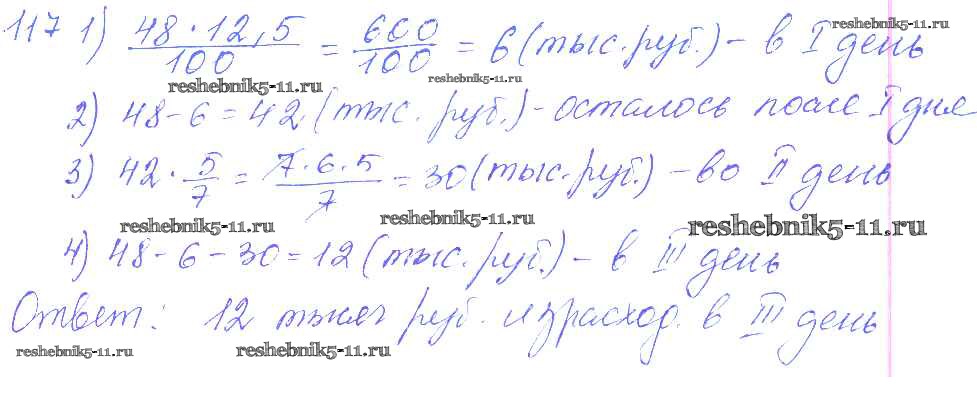 117 1) 48 · 12,5 / 100 = 600 / 100 = 6 (тыс. руб.) – в I день
reshebnik5-11.ru
reshebnik5-11.ru
reshebnik5-11.ru
2) 48 - 6 = 42 (тыс. руб.) - осталось после I дня
3) 42 · 5/7 = 7 · 6 · 5 / 7 = 30 (тыс. руб.) – во II день
reshebnik5-11.ru
reshebnik5-11.ru
reshebnik5-11.ru
4) 48 - 6 - 30 = 12 (тыс. руб.) – в III день
Ответ: 12 тысяч руб. израсход. в III день
reshebnik5-11.ru
reshebnik5-11.ru